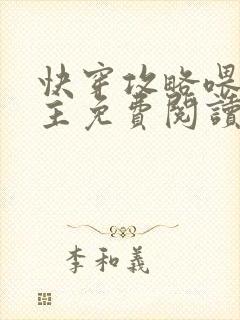 快穿攻略喂
主免費閱讀
李和義